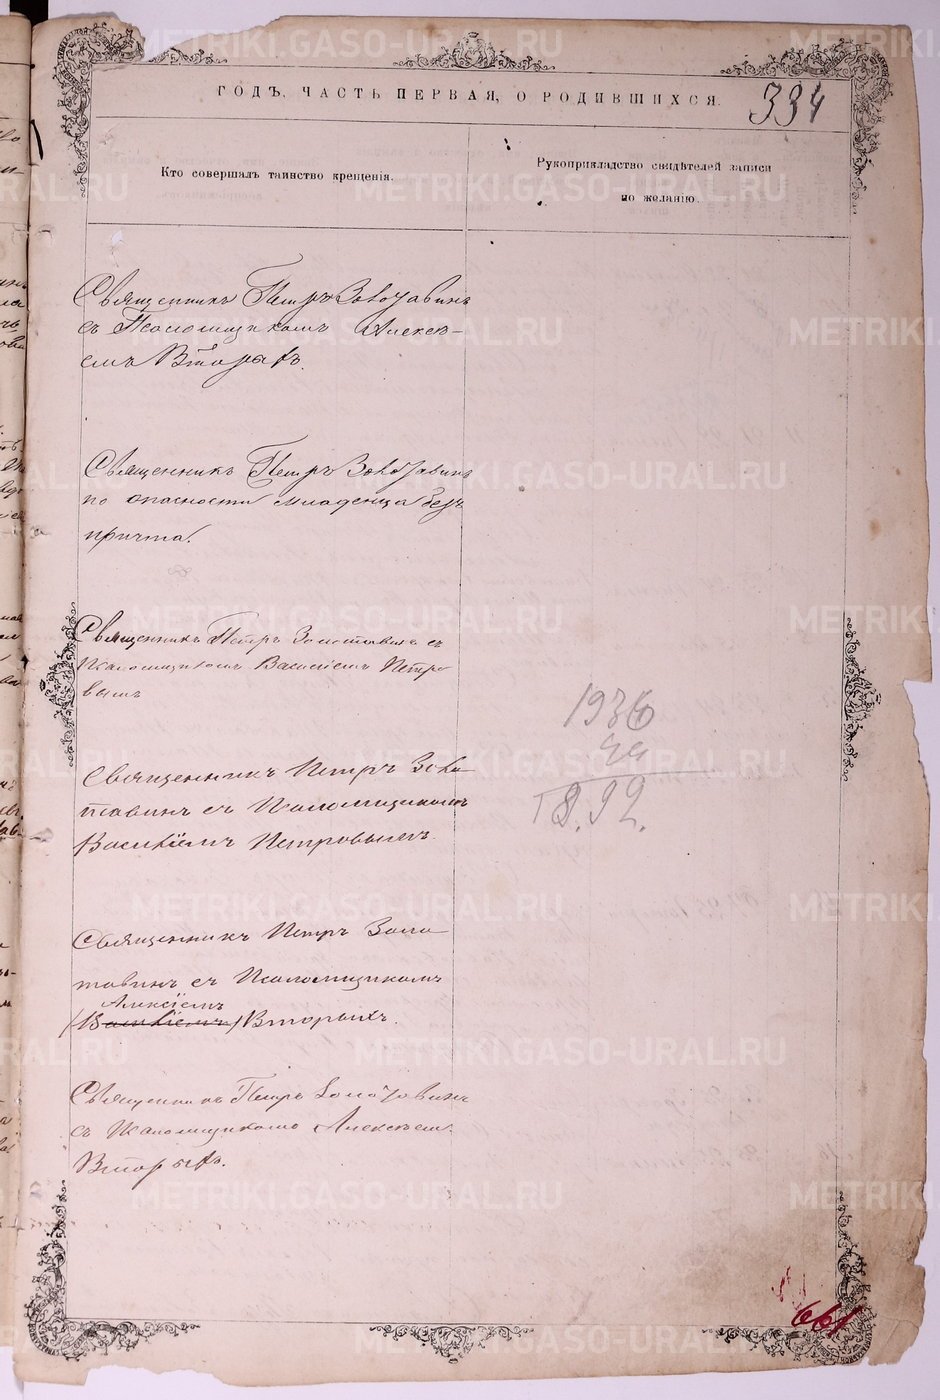 ГОДЪ, ЧАСТЬ ПЕРВАЯ, О РОДИВШИХСЯ.
334
Кто совершалъ таинство крещенія.
Рукоприкладство свидѣтелей записи
по желанію.
Священникъ Петръ Золотавинъ
съ Псаломщикомъ Алексѣ-
емъ Вторыхъ.
Священникъ Петръ Золотавинъ
по опасности младенца безъ
причта.
Священникъ Петръ Золотавинъ съ
Псаломщикомъ Василіемъ Петро
вымъ
Священникъ Петръ Золо
тавинъ съ Псаломщикомъ
Василіемъ Петровымъ.
Священникъ Петръ Золо
тавинъ съ Псаломщикомъ
Алексіемъ
(Василіемъ) Вторыхъ.
Священникъ Петръ Золотавинъ
съ Псаломщикомъ Алексѣем
Вторыхъ.
1936
44
1892.
661
METRIKI.GASO-URAL.RU